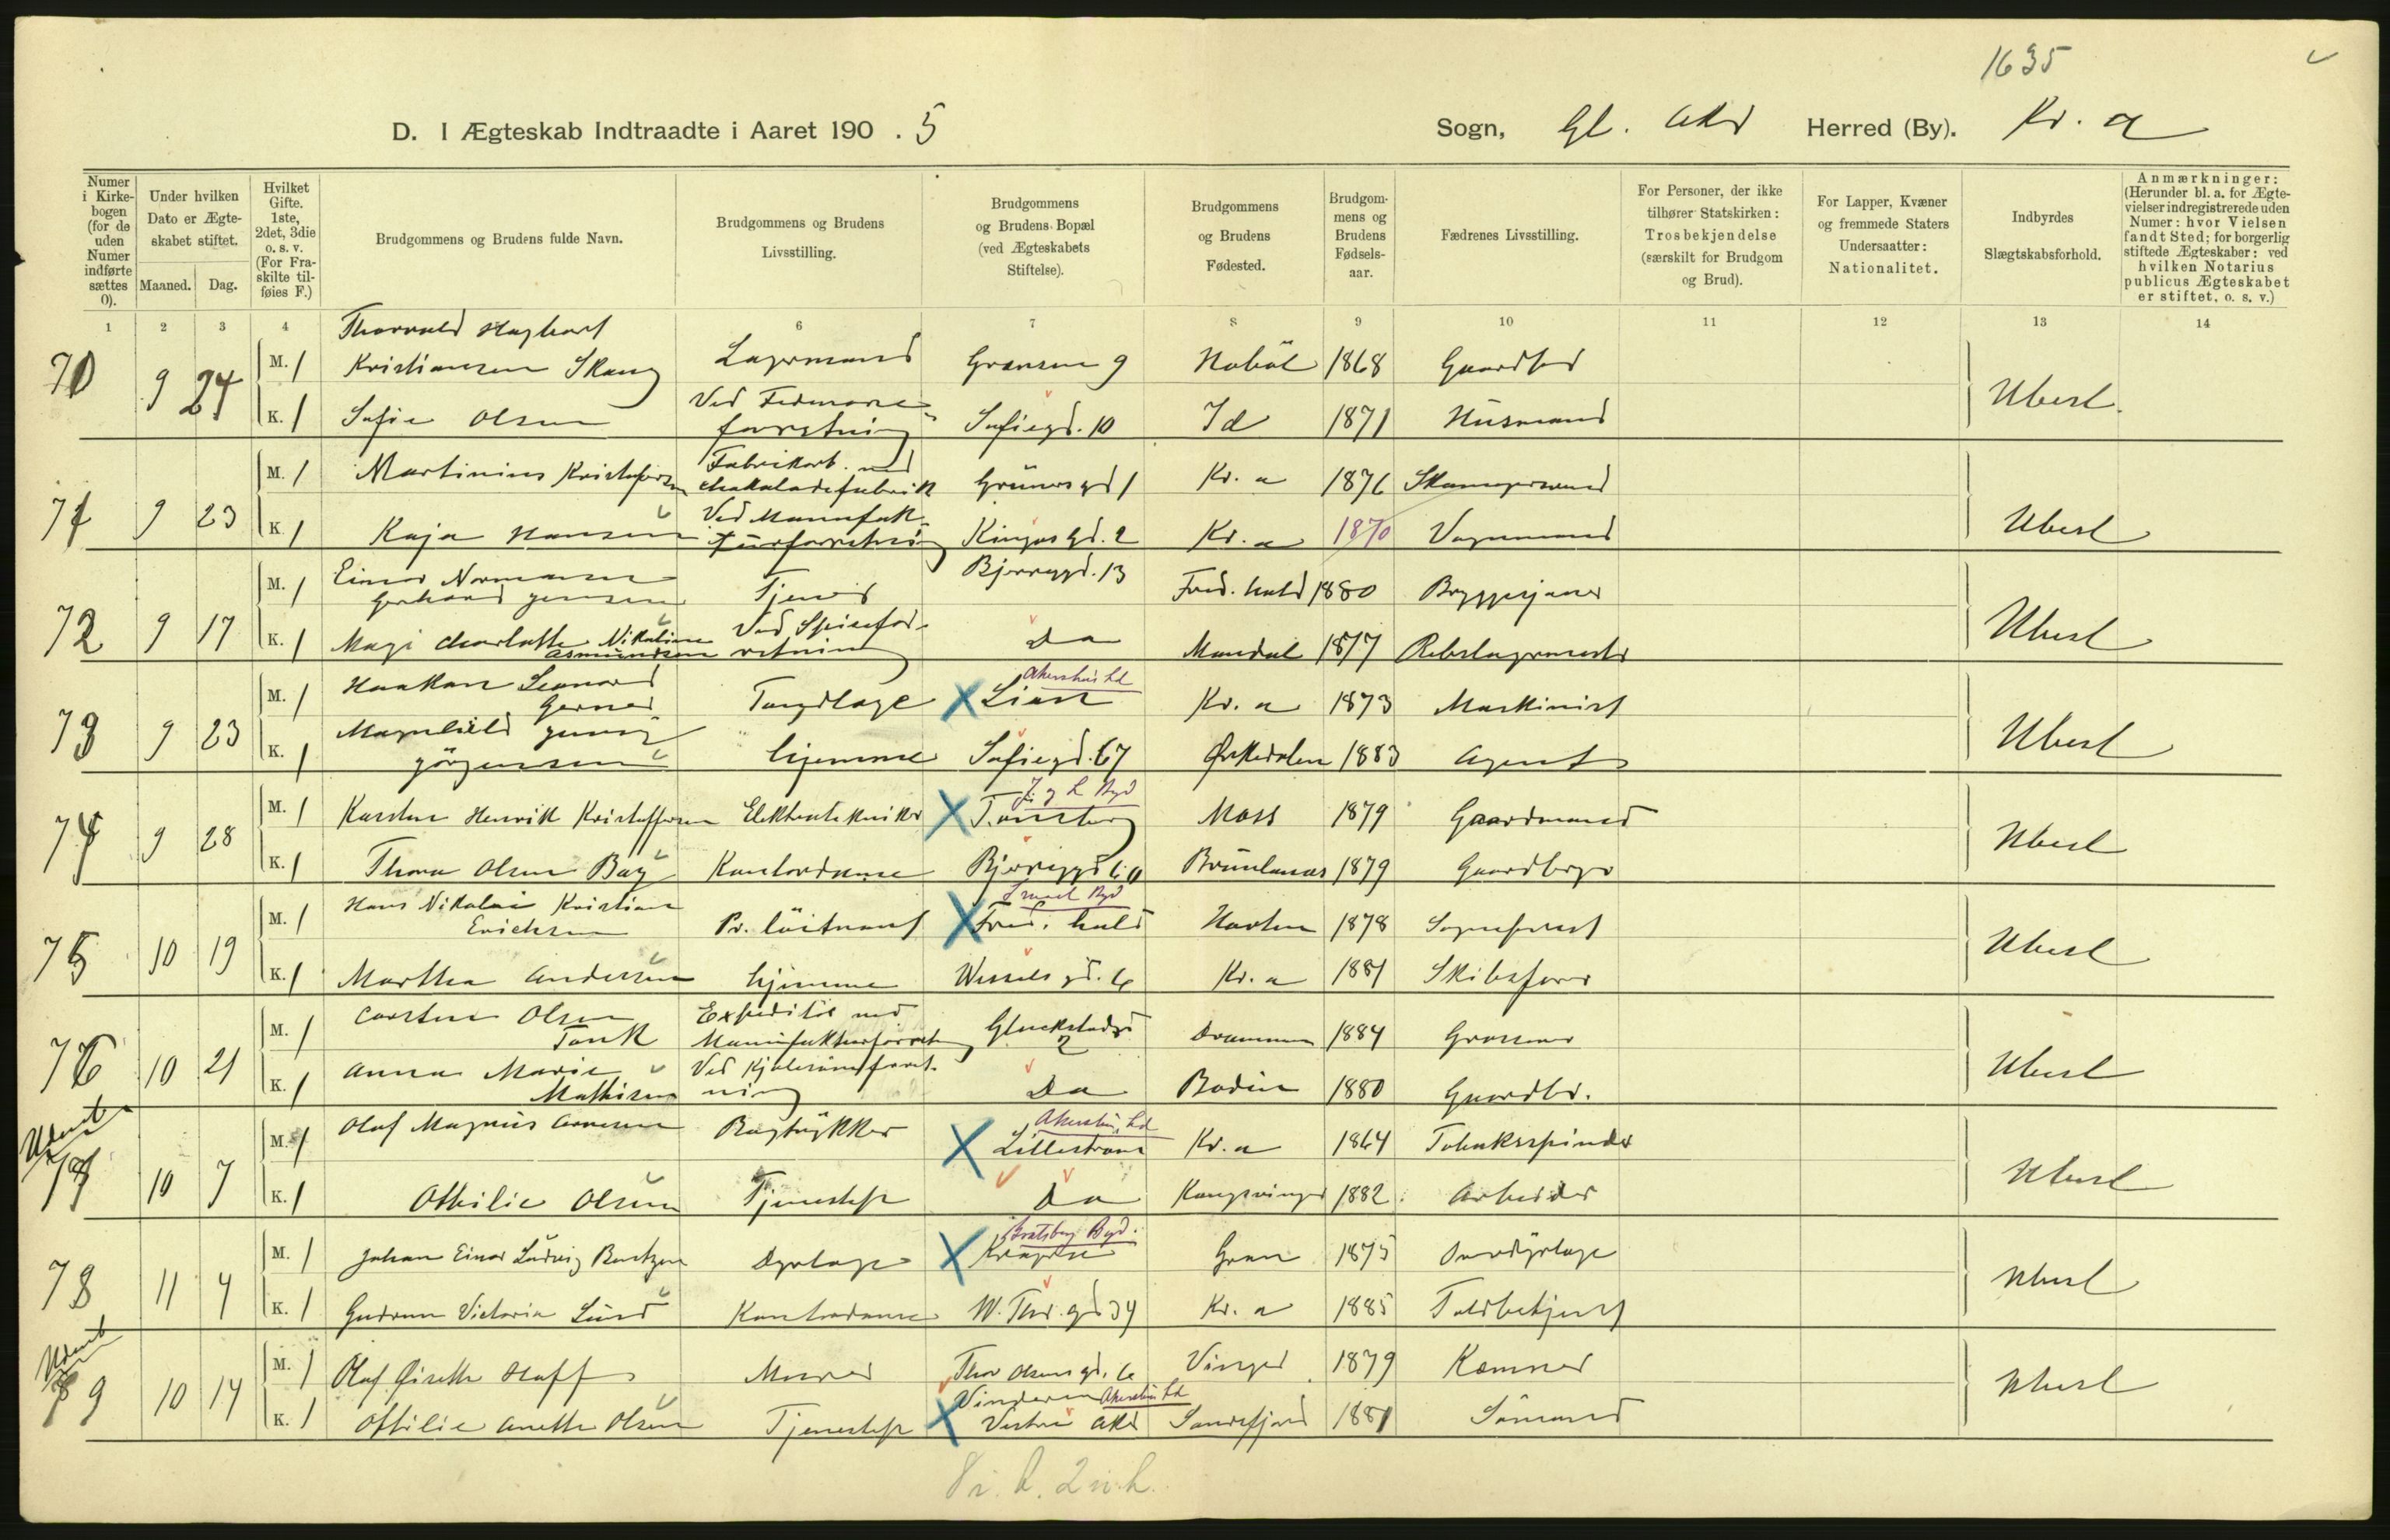 1635
D. I Ægteskab Indtraadte i Aaret 190 . 5
Sogn, Gl. Aker Herred (By). Kr. a
Numer i Kirkebogen (for de uden Numer indførte sættes 0).
Under hvilken Dato er Ægteskabet stiftet.
Maaned. Dag.
Hvilket Gifte. 1ste, 2det, 3die o. s. v. (For Fraskilte tilføies F.)
Brudgommens og Brudens fulde Navn.
Brudgommens og Brudens Livsstilling.
Brudgommens og Brudens Bopæl (ved Ægteskabets Stiftelse).
Brudgommens og Brudens Fødested.
Brudgommens og Brudens Fødselsaar.
Fædrenes Livsstilling.
For Personer, der ikke tilhører Statskirken: Trosbekjendelse (særskilt for Brudgom og Brud).
For Lapper, Kvæner og fremmede Staters Undersaatter: Nationalitet.
Indbyrdes Slægtskabsforhold.
Anmærkninger: (Herunder bl. a. for Ægtevielser indregistrerede uden Numer: hvor Vielsen fandt Sted; for borgerlig stiftede Ægteskaber: ved hvilken Notarius publicus Ægteskabet er stiftet, o. s. v.)
1 2 3 4 6 7 8 9 10 11 12 13 14
70 9 24 M. 1 Thorvald Hagbart Kristiansen Skaug Lagermand Grænsen 9 Hobøl 1868 Gaardbr Ubesl.
K. 1 Sofie Olsen Ved Fedevareforretning Sofiegd. 10 Id 1871 Husmand
71 9 23 M. 1 Martinius Kristofersen Fabrikarb. ved chokoladefabrik Grünersgd 1 Kr. a 1876 Skomagersvend Ubesl
K. 1 Kaja Hansen Ved Manufakturforretning Kingosgd. 2 Kr. a 1870 Vognmand
72 9 17 M. 1 Einar Normann Gerhard Jensen Tjener Bjerregd. 13 Fred.hald 1880 Bryggerjaner Ubesl
K. 1 Magi Charlotte Nikoline Asmundsen Ved Spiseforretning Do Mandal 1877 Rebslagermester
73 9 23 M. 1 Haakon Leonard Gerner Tandlæge Lian Akershus Kr. a 1873 Maskinist Ubesl
K. 1 Magnhild Jenny Jörgensen hjemme Sofiegd. 67 Ørkedalen 1883 Agent
74 9 28 M. 1 Karsten Henrik Kristoffersen Elektrotekniker Tønsberg J. g L Byd Moss 1879 Gaardmand Ubesl
K. 1 Thora Olsen Bøy Kontordame Bjerregd 60 Brunlanes 1879 Gaardbruger
75 10 19 M. 1 Hans Nikolai Kristian Erichsen Pr. löitnant Fred. hald Smaal Byd Horten 1878 Sogneprest Ubesl
K. 1 Marthea Andersen hjemme Wesselsgd. 6 Kr. a 1881 Skibsfører
76 10 21 M. 1 Carsten Olsen Tank Expeditör ved Manufakturforretn Gluckstadgd 2 Drammen 1884 Grosserer Ubesl
K. 1 Anna Marie Mathisen Ved Kjolesömforretning Do Bodin 1880 Gaardbr.
77 10 7 M. 1 Olaf Magnus Arnesen Bogtrykker Lillestrøm Kr. a 1864 Tobaksspinder Ubesl
K. 1 Othilie Olsen Tjenestepi Do Kongsvinger 1882 Arbeider
78 11 4 M. 1 Johan Einar Ludvig Bentzen Dyrlæge Kragerø Bratsberg Byd. Gran 1875 Overdyrlæge Ubesl
K. 1 Gudrun Victoria Lund Kontordame W. Thr. gd 34 Kr. a 1885 Toldbetjent
79 10 14 M. 1 Olaf Gisette Hoff Murer Thor Olsensgd. 6 Vinger 1879 Kæmner Ubesl
K. 1 Othilie Anette Olsen Tjenestepi Vinderen Vestre Aker Sandefjord 1881 Sömand